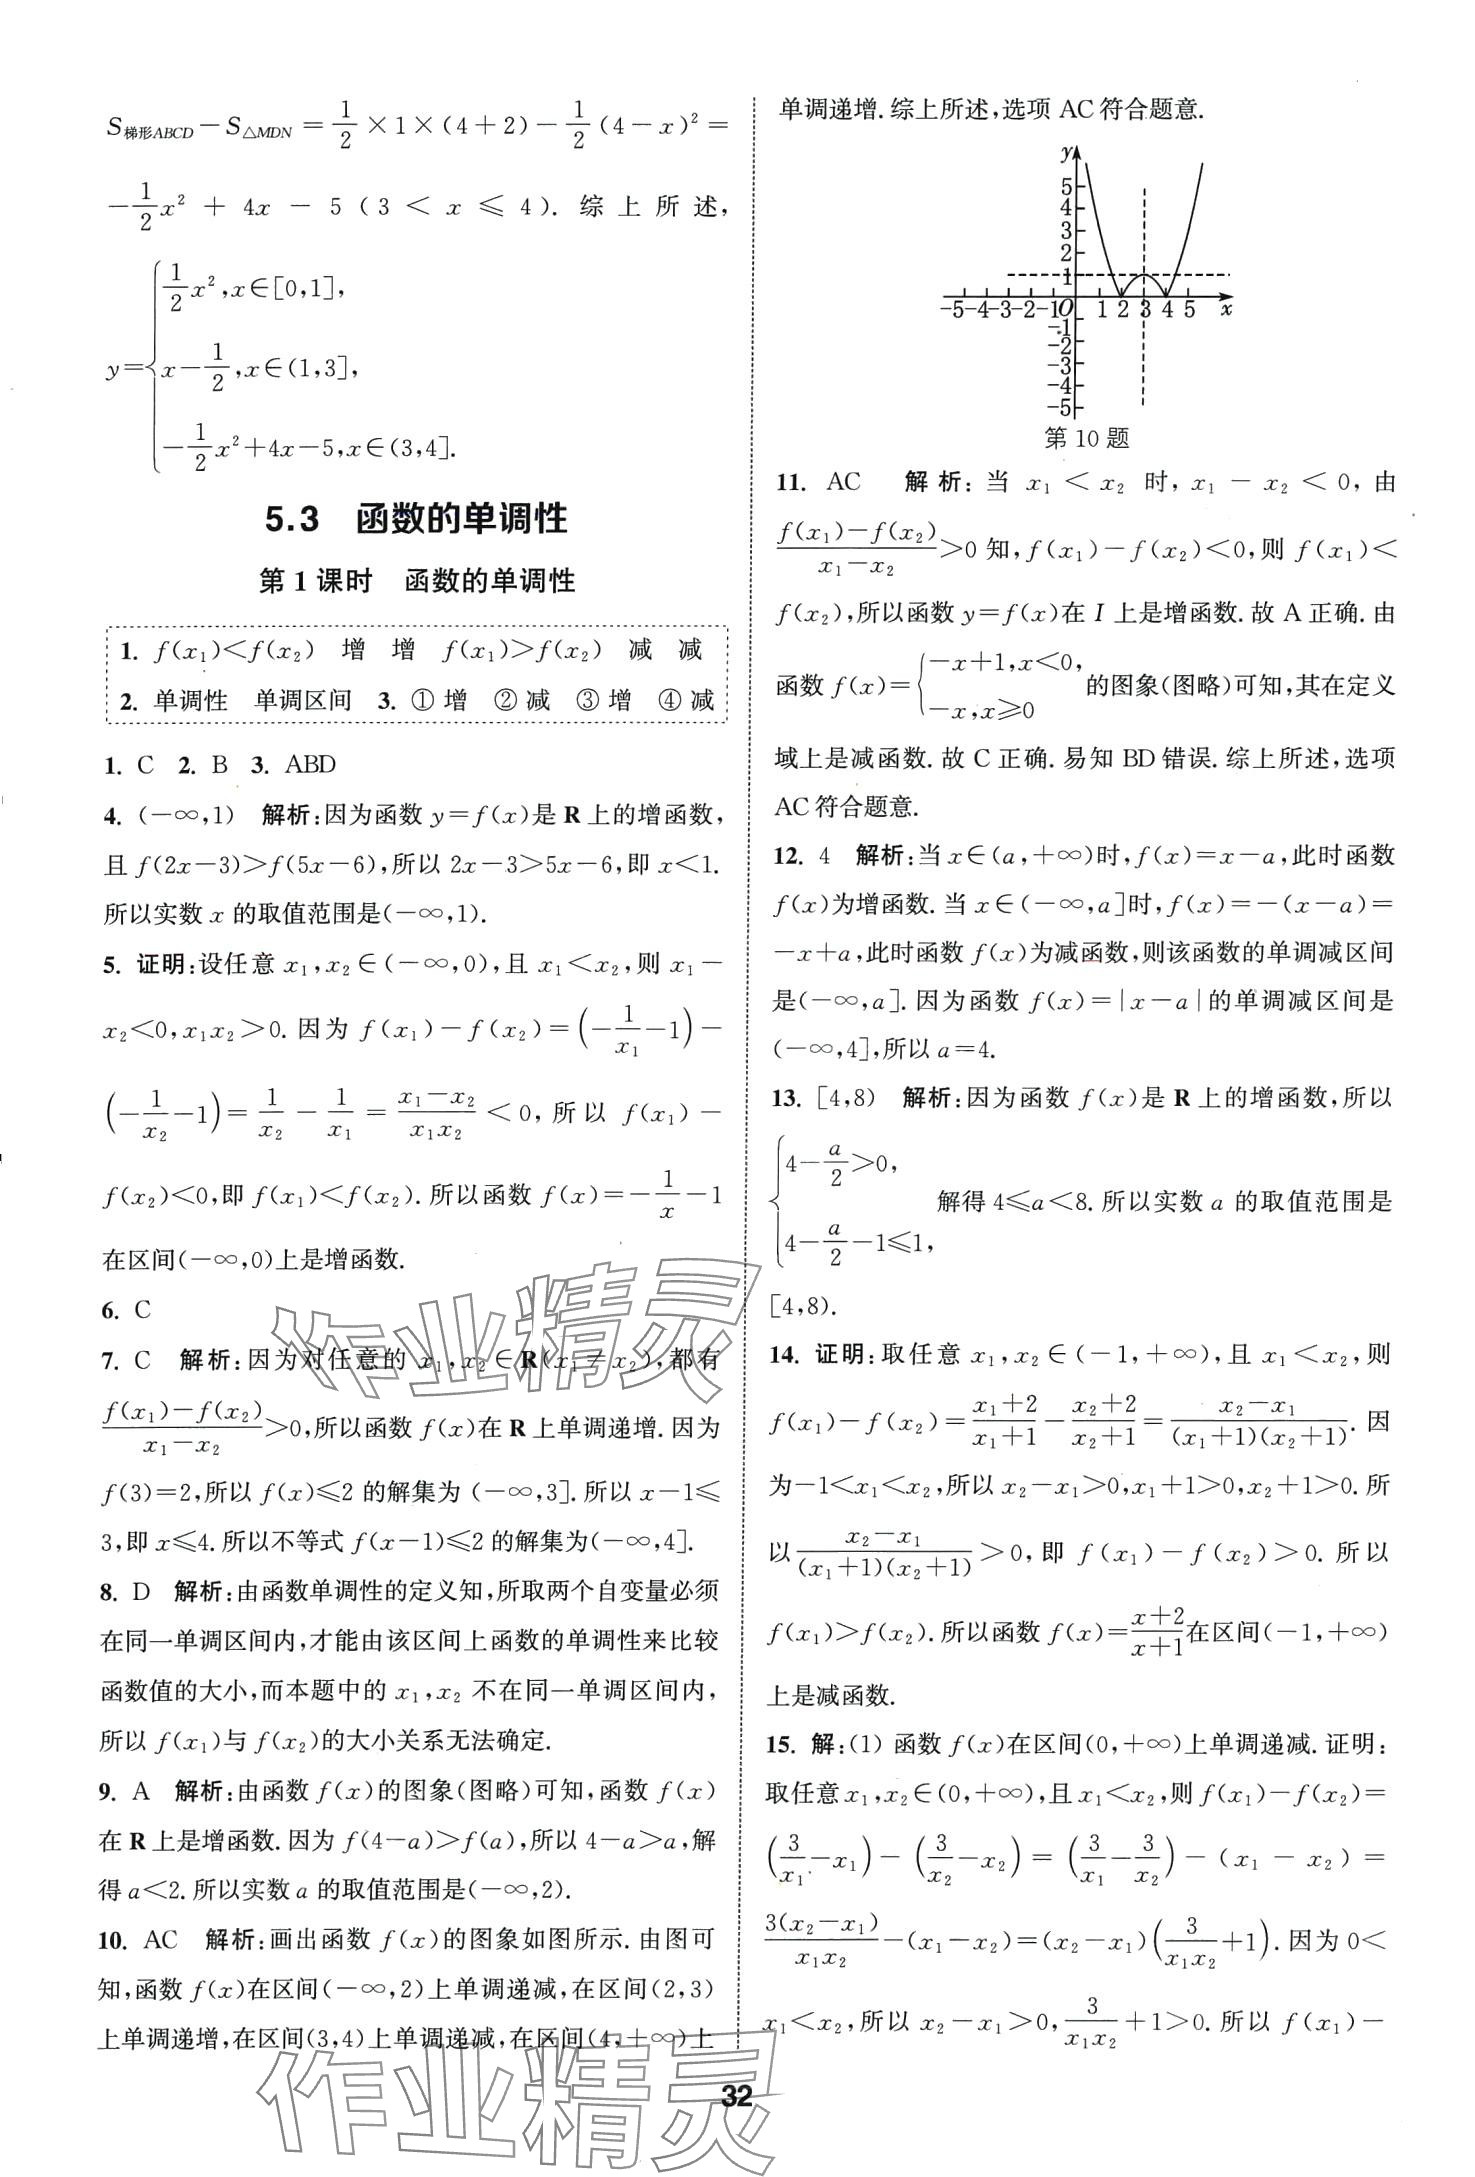 S梯形ABCD－S△MDN＝1/2×1×(4＋2)－1/2(4－x)²＝
－1/2x²＋4x－5(3＜x≤4).综上所述，
y＝{1/2x²,x∈[0,1],
x－1/2,x∈(1,3],
－1/2x²+4x－5,x∈(3,4].
5.3 函数的单调性
第1课时 函数的单调性
1. f(x₁)＜f(x₂) 增 增 f(x₁)＞f(x₂) 减 减
2. 单调性 单调区间 3. ①增 ②减 ③增 ④减
1. C 2. B 3. ABD
4. (－∞,1) 解析:因为函数 y＝f(x)是 R 上的增函数，
且 f(2x－3)＞f(5x－6),所以 2x－3＞5x－6,即 x＜1.
所以实数 x 的取值范围是(－∞,1).
5. 证明:设任意 x₁,x₂∈(－∞,0),且 x₁＜x₂,则 x₁－
x₂＜0,x₁x₂＞0.因为 f(x₁)－f(x₂)＝(－1/x₁－1)－
(－1/x₂－1)＝1/x₂－1/x₁＝(x₁－x₂)/(x₁x₂)＜0,所以 f(x₁)－
f(x₂)＜0,即 f(x₁)＜f(x₂).所以函数 f(x)＝－1/x－1
在区间(－∞,0)上是增函数.
6. C
7. C 解析:因为对任意的 x₁,x₂∈R(x₁≠x₂),都有
(f(x₁)－f(x₂))/(x₁－x₂)＞0,所以函数 f(x)在 R 上单调递增.因为
f(3)＝2,所以 f(x)≤2 的解集为 (－∞,3].所以 x－1≤
3,即 x≤4.所以不等式 f(x－1)≤2 的解集为(－∞,4].
8. D 解析:由函数单调性的定义知,所取两个自变量必须
在同一单调区间内,才能由该区间上函数的单调性来比较
函数值的大小,而本题中的 x₁,x₂ 不在同一单调区间内，
所以 f(x₁)与 f(x₂)的大小关系无法确定.
9. A 解析:由函数 f(x)的图象(图略)可知,函数 f(x)
在 R 上是增函数.因为 f(4－a)＞f(a),所以 4－a＞a,解
得 a＜2.所以实数 a 的取值范围是(－∞,2).
10. AC 解析:画出函数 f(x)的图象如图所示.由图可
知,函数 f(x)在区间(－∞,2)上单调递减,在区间(2,3)
上单调递增,在区间(3,4)上单调递减,在区间(4,＋∞)上
单调递增.综上所述,选项 AC 符合题意.
y
5
4
3
2
1
-5 -4 -3 -2 -1 O 1 2 3 4 5 x
-1
-2
-3
-4
-5
第10题
11. AC 解析:当 x₁＜x₂ 时,x₁－x₂＜0,由
(f(x₁)－f(x₂))/(x₁－x₂)＞0 知,f(x₁)－f(x₂)＜0,则 f(x₁)＜
f(x₂),所以函数 y＝f(x)在 I 上是增函数.故 A 正确.由
函数 f(x)＝{－x＋1,x＜0, －x,x≥0 的图象(图略)可知,其在定义
域上是减函数.故 C 正确.易知 BD 错误.综上所述,选项
AC 符合题意.
12. 4 解析:当 x∈(a,＋∞)时,f(x)＝x－a,此时函数
f(x)为增函数.当 x∈(－∞,a]时,f(x)＝－(x－a)＝
－x＋a,此时函数 f(x)为减函数,则该函数的单调减区间
是(－∞,a].因为函数 f(x)＝|x－a|的单调减区间是
(－∞,4],所以 a＝4.
13. [4,8) 解析:因为函数 f(x)是 R 上的增函数,所以
{4－a/2＞0, 4－a/2－1≤1, 解得 4≤a＜8.所以实数 a 的取值范围是
[4,8).
14. 证明:取任意 x₁,x₂∈(－1,＋∞),且 x₁＜x₂,则
f(x₁)－f(x₂)＝(x₁+2)/(x₁+1)－(x₂+2)/(x₂+1)＝(x₂－x₁)/((x₁+1)(x₂+1)).因
为－1＜x₁＜x₂,所以 x₂－x₁＞0,x₁＋1＞0,x₂＋1＞0.所
以(x₂－x₁)/((x₁+1)(x₂+1))＞0,即 f(x₁)－f(x₂)＞0.所以
f(x₁)＞f(x₂).所以函数 f(x)＝(x+2)/(x+1)在区间(－1,＋∞)
上是减函数.
15. 解:(1) 函数 f(x)在区间(0,＋∞)上单调递减.证明:
取任意 x₁,x₂∈(0,＋∞),且 x₁＜x₂,则 f(x₁)－f(x₂)＝
(3/x₁－x₁)－(3/x₂－x₂)＝(3/x₁－3/x₂)－(x₁－x₂)＝
3(x₂－x₁)/(x₁x₂)－(x₁－x₂)＝(x₂－x₁)(3/(x₁x₂)＋1).因为 0＜
x₁＜x₂,所以 x₂－x₁＞0,3/(x₁x₂)＋1＞0.所以 f(x₁)－
作业精灵
作业精灵
32